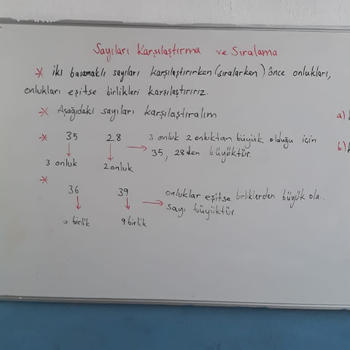 Sayıları Karşılaştırma ve Sıralama
* İki basamaklı sayıları karşılaştırırken (sıralarken) önce onlukları,
onlukları eşitse birlikleri karşılaştırırız.
* Aşağıdaki sayıları karşılaştıralım
* 35 28 3 onluk 2 onluktan büyük olduğu için
35, 28den büyüktür.
3 onluk 2 onluk
*
36 39 → onluklar eşitse birliklerden büyük ola
sayı büyüktür
birlik 9 birlik
a)
b)